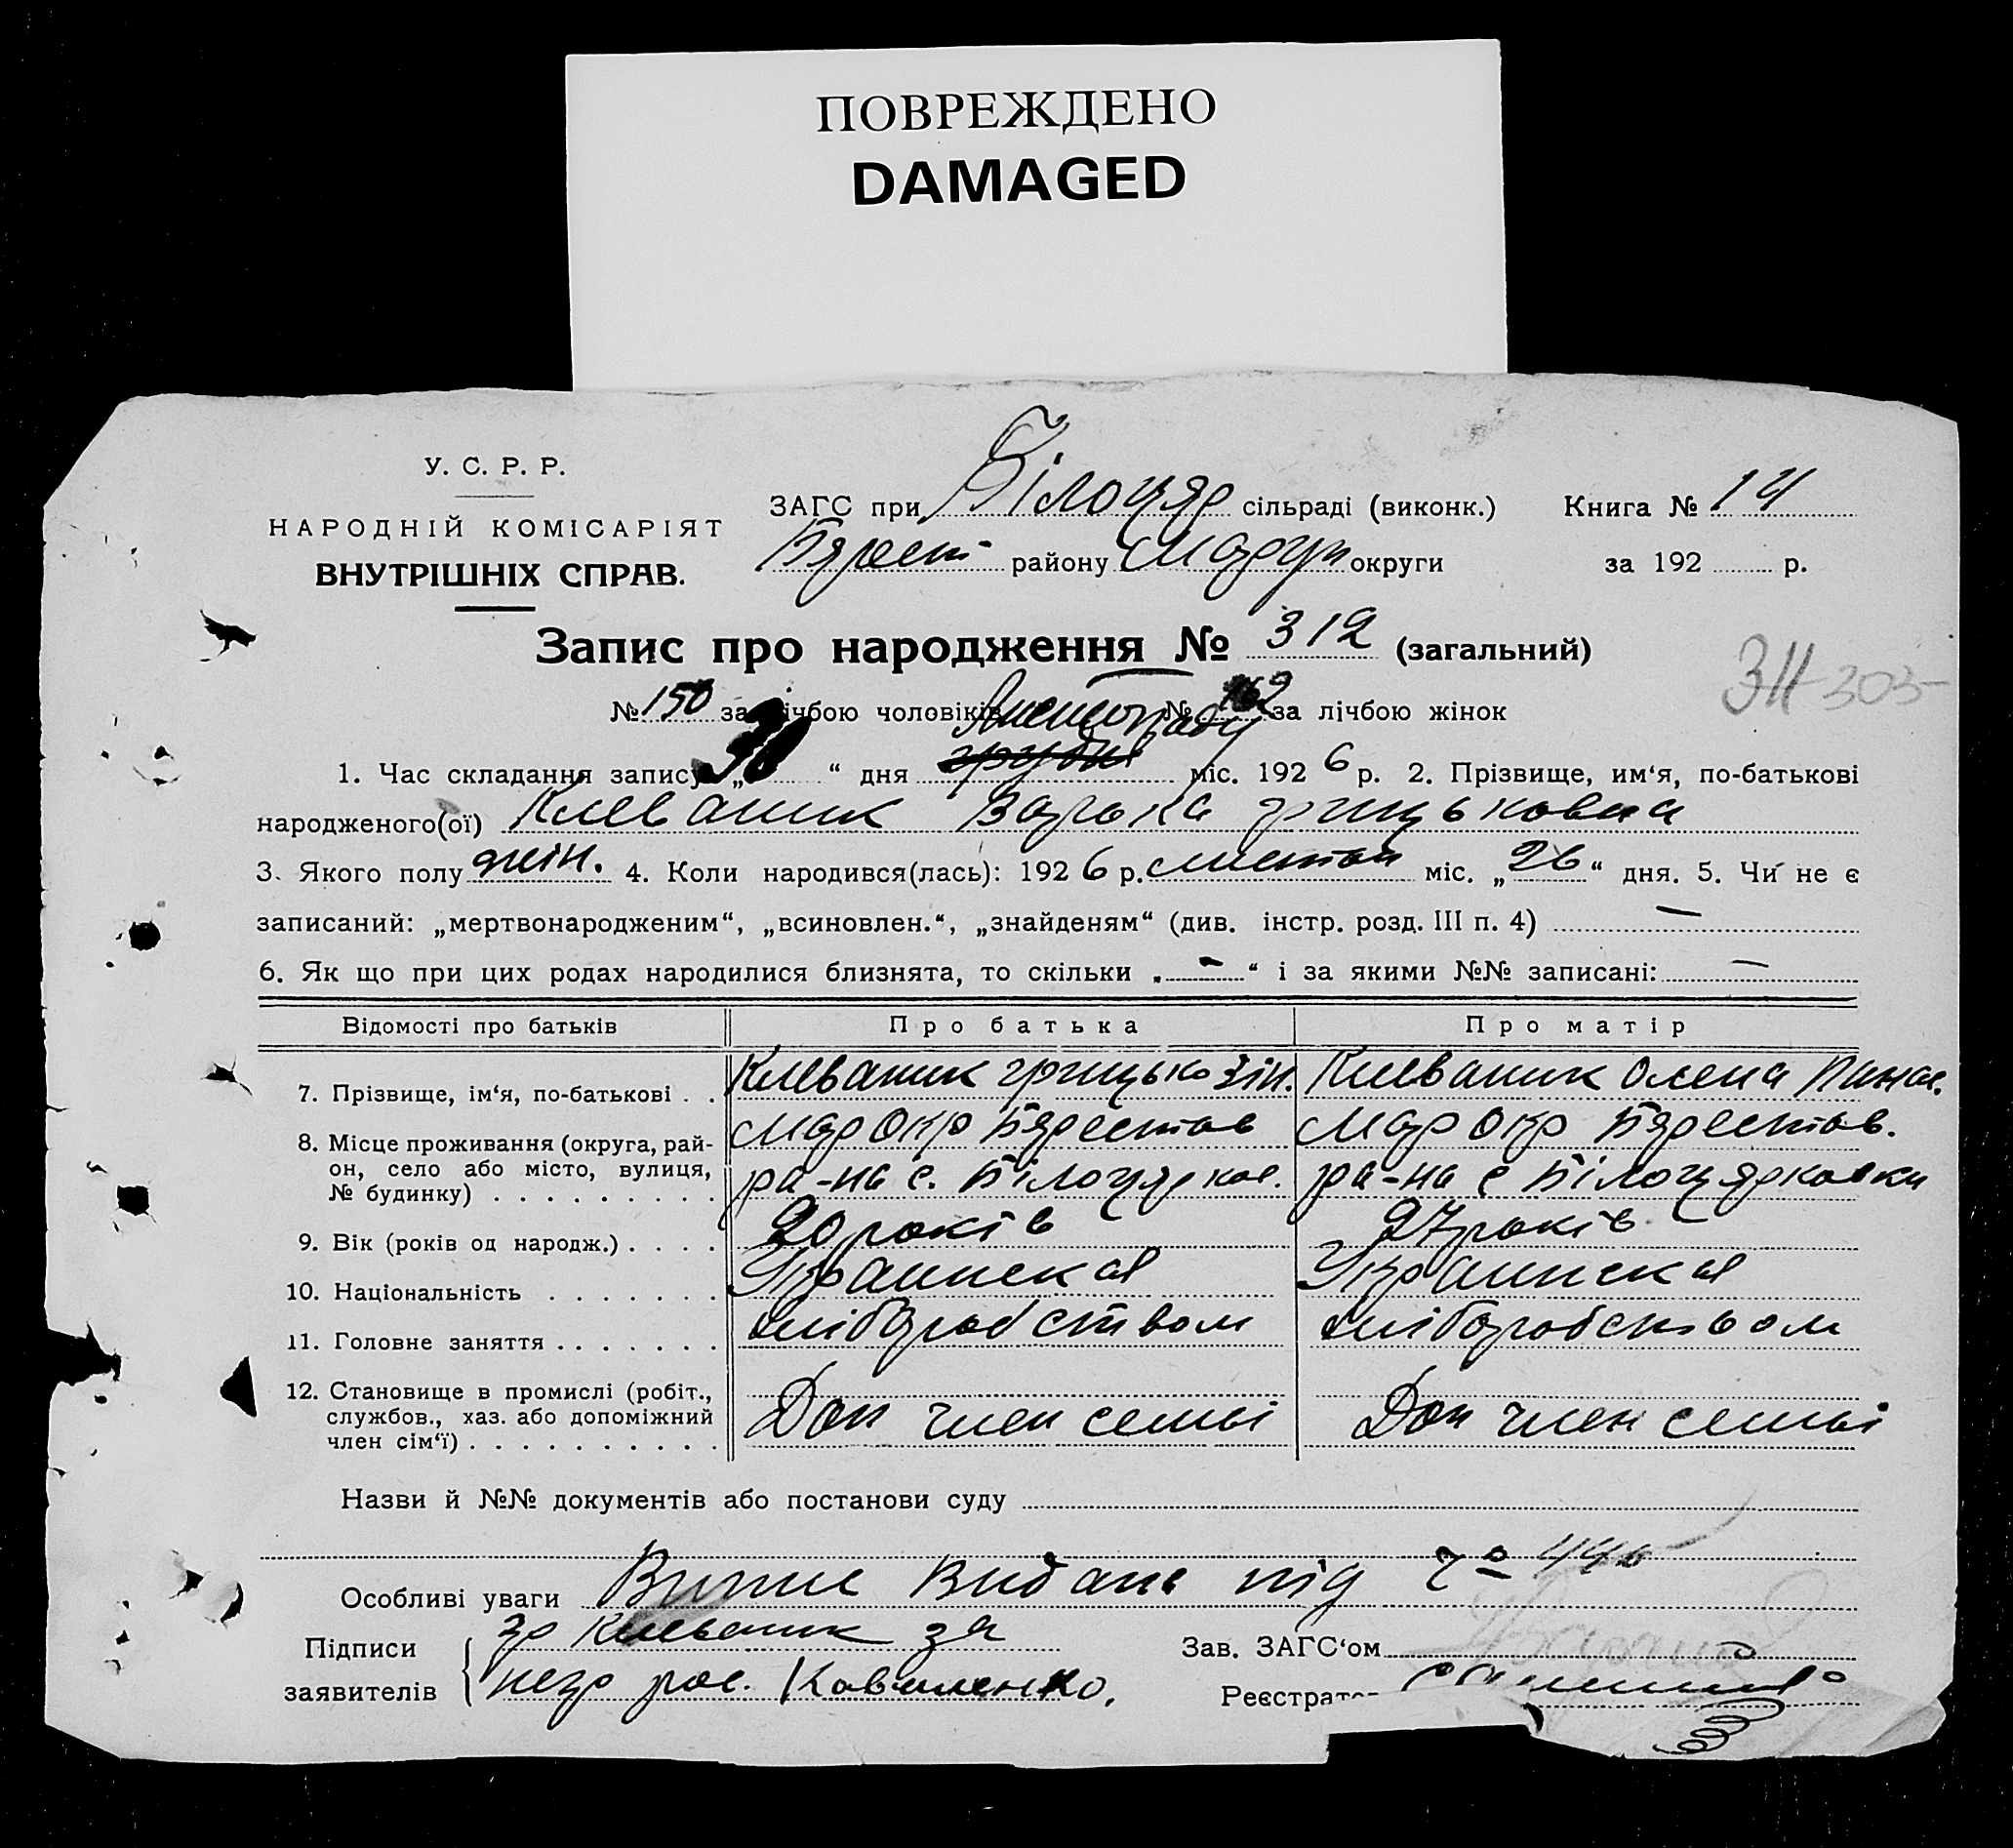 ПОВРЕЖДЕНО
DAMAGED
У. С. Р. Р.
НАРОДНІЙ КОМІСАРІЯТ
ВНУТРІШНІХ СПРАВ.
ЗАГС при Білоцяр сільраді (виконк.) Книга № 14
Бярест району Марүп округи за 192 р.
Запис про народження № 312 (загальний)
311 303
№ 150 за лічбою чоловіків № 162 за лічбою жінок
Листопаду
1. Час складання запису „30“ дня грудня міс. 1926 р. 2. Прізвище, им‘я, по-батькові
народженого(ої) Клеваник Варька Грицьковна
3. Якого полу жін. 4. Коли народився(лась): 1926 р. листоп міс. „26“ дня. 5. Чи не є
записаний: „мертвонародженим“, „всиновлен.“, „знайденям“ (див. інстр. розд. III п. 4) —
6. Як що при цих родах народилися близнята, то скільки „—“ і за якими №№ записані: —
Відомості про батьків Про батька Про матір
7. Прізвище, ім‘я, по-батькові . . Клеваник Грицько Зін. Клеваник Олена Панас.
8. Місце проживання (округа, рай- Мар Окр Бярестов Мар Окр Бярестов.
он, село або місто, вулиця,
№ будинку) . . . . . . . . . . ра-на с. Білоцярков. ра-на с Білоцярковки
9. Вік (років од народж.) . . . . 20 років 27 років
10. Національність . . . . . . . Украинская Украинская
11. Головне заняття . . . . . . . хліборобством хліборобством
12. Становище в промислі (робіт.,
службов., хаз. або допоміжний Доп член семьі Доп член семьі
член сім‘ї) . . . . . . . . . . .
Назви й №№ документів або постанови суду
Особливі уваги Випис Видано під
Підписи гр Клеваник за Зав. ЗАГС‘ом
заявителів негр рос. Коваленко. Реєстратор